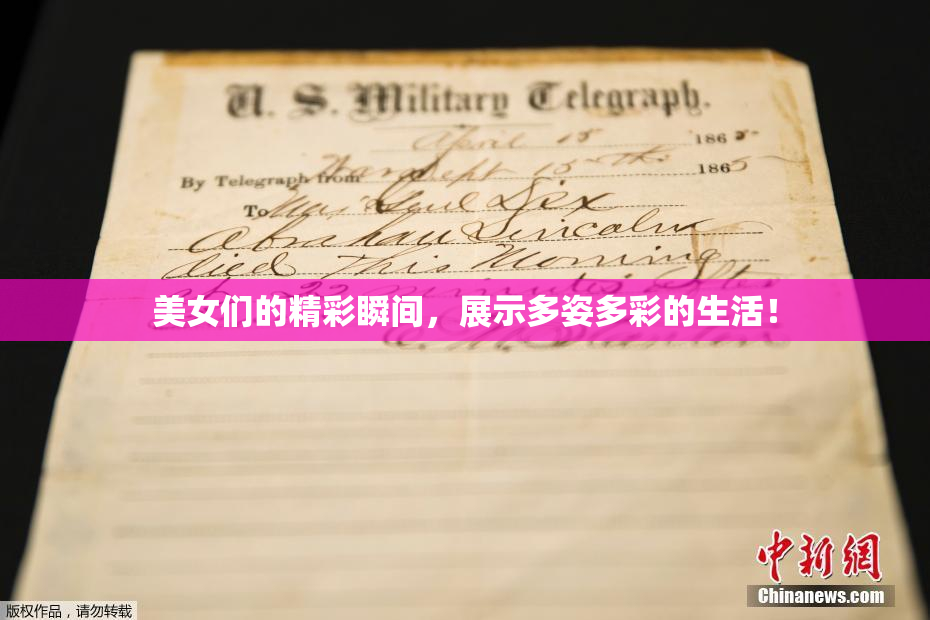 U. S. Military Telegraph.
April 15 1865
By Telegraph from War Dept 15th 1865
To Maj Genl Dix
Abraham Lincoln
died This Morning
at 22 minutes after
美女们的精彩瞬间，展示多姿多彩的生活！
E. M. Stanton
中新网
Chinanews.com
版权作品，请勿转载